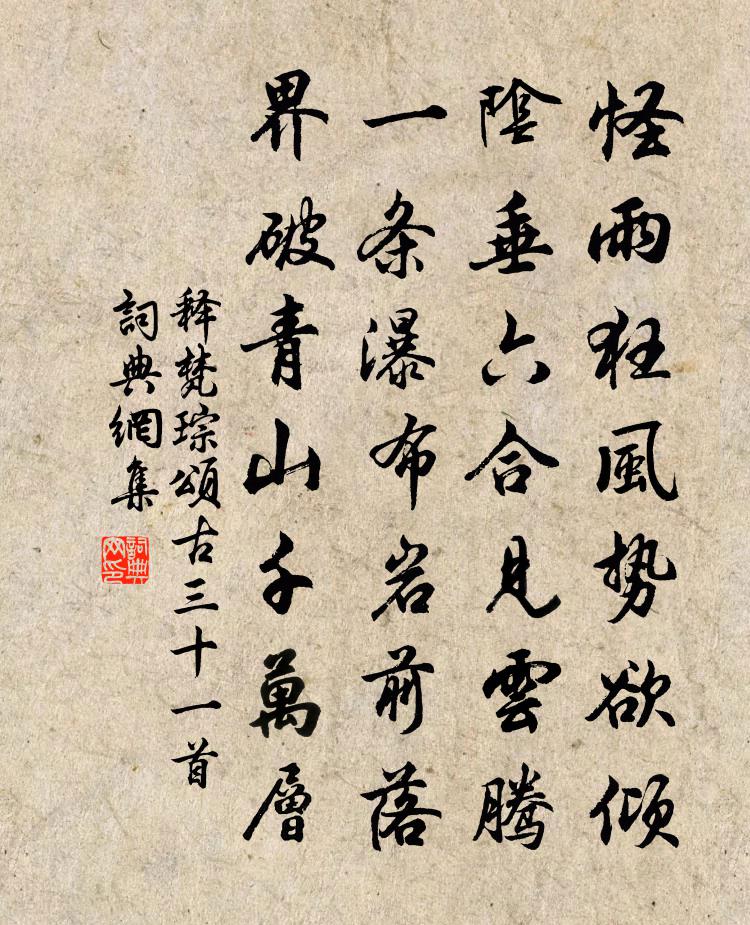 怪雨狂風勢欲傾
陰垂六合見雲騰
一条瀑布岩前落
界破青山千萬層
释梵琮頌古三十一首
詞典網集
詞典
网印